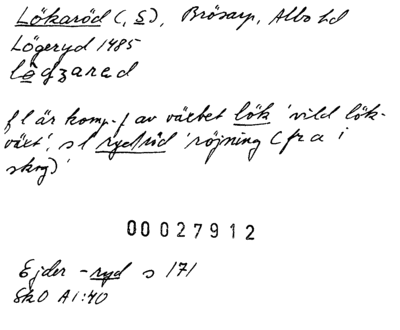 Lökaröd (, S), Brösarp, Albo hd
Lögeryd 1485
løgzared
fl är komp. / av växtet lök 'vild lök-
växt', sl ryd/röd 'röjning (fr a i
skog)'
00027912
Ejder -ryd s 171
SkO A1:40